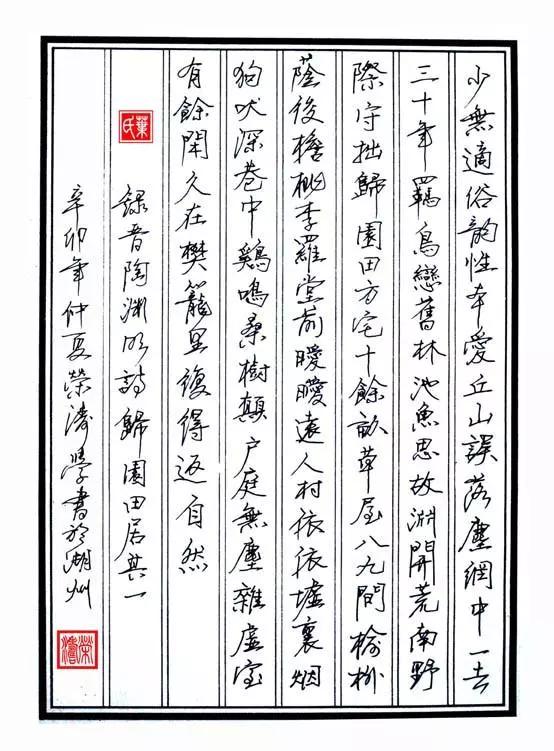 少無適俗韵性本愛丘山誤落塵網中一去
三十年羈鳥戀舊林池魚思故淵開荒南野
際守拙歸園田方宅十餘畝草屋八九間榆柳
蔭後檐桃李羅堂前曖曖遠人村依依墟裏烟
狗吠深巷中鷄鳴桑樹顛户庭無塵雜虚室
有餘閑久在樊籠里復得返自然
錄晋陶淵明詩歸園田居其一
辛卯年仲夏榮濤學書於湖州
葉氏
榮濤